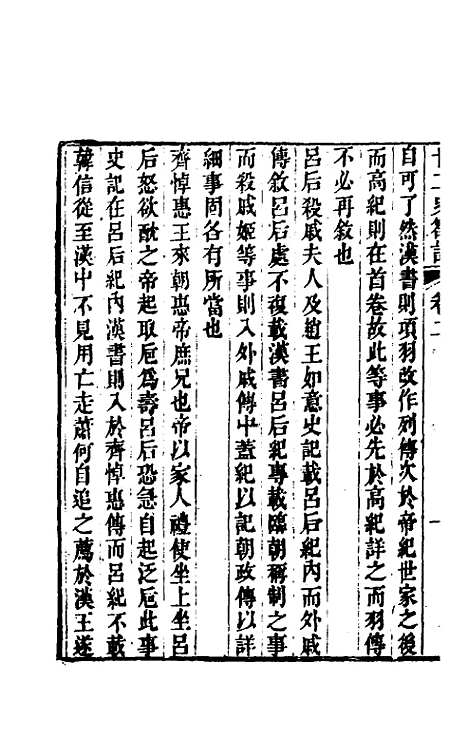 廿二史劄記 卷二
自可了然漢書則項羽改作列傳次於帝紀世家之後
而高紀則在首卷故此等事必先於高紀詳之而羽傳
不必再敘也
呂后殺戚夫人及趙王如意史記載呂后紀內而外戚
傳敘呂后處不復載漢書呂后紀專載臨朝稱制之事
而殺戚姬等事則入外戚傳中蓋紀以記朝政傳以詳
細事固各有所當也
齊悼惠王來朝惠帝庶兄也帝以家人禮使坐上坐呂
后怒欲酖之帝起取巵為壽呂后恐急自起泛巵此事
史記在呂后紀內漢書則入於齊悼惠傳而呂紀不載
韓信從至漢中不見用亡走蕭何自追之薦於漢王遂